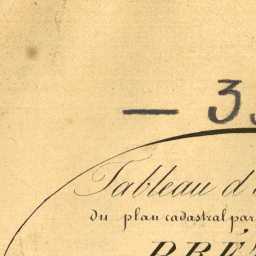 — 3
Tableau d'
du plan cadastral par
PRÉ